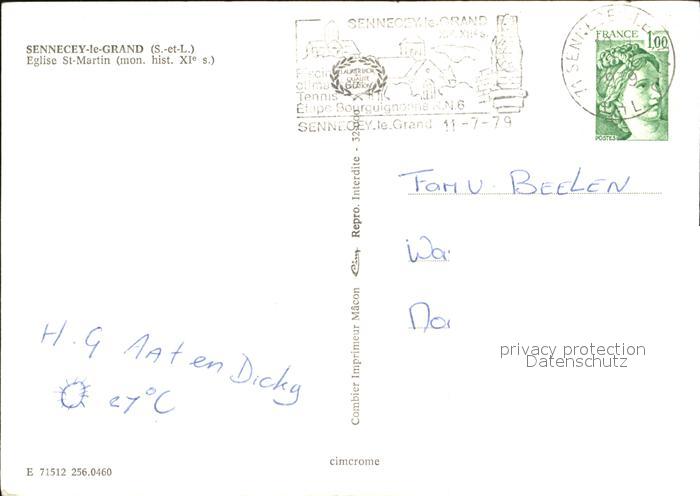 SENNECEY-le-GRAND (S.-et-L.)
Eglise St-Martin (mon. hist. XIe s.)
SENNECEY-le-GRAND
Tennis
Etape Bourguignonne R.N.6
SENNECEY-le-Grand 11-7-79
71 SENNECEY LE
FRANCE 1,00
POSTES
Fam v. BEELEN
Wa
H. G Aat en Dicky
27°C
Combier Imprimeur Mâcon Cim Repro. Interdite
privacy protection
Datenschutz
cimcrome
E 71512 256.0460